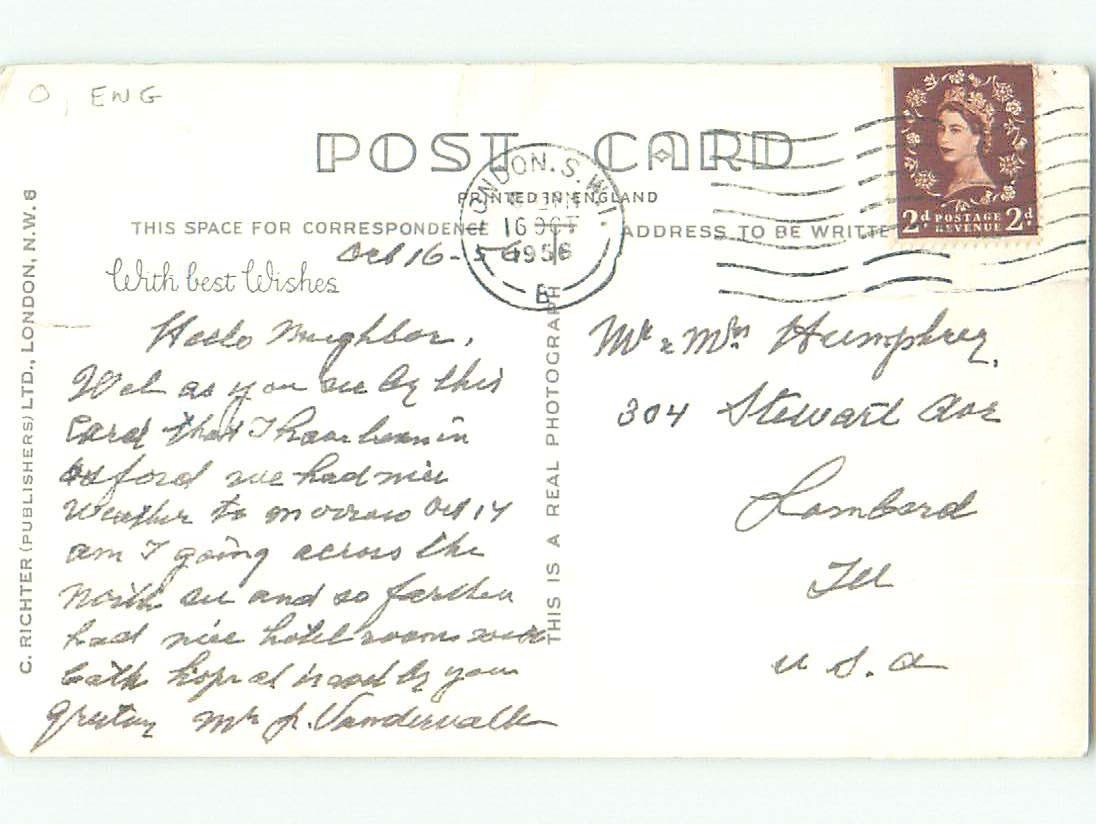 O, ENG
POST CARD
PRINTED IN ENGLAND
THIS SPACE FOR CORRESPONDENCE
ADDRESS TO BE WRITTE
LONDON. S.W.1.
16 OCT
1956
B
2d POSTAGE REVENUE 2d
Oct 16-56
With best Wishes
Hello Neighbor,
Wel as you see by this
Card that I have been in
Oxford we had nice
Weather to morrow Oct 17
am I going across the
North see and so farther
had nice hotel rooms with
bath hope al is wel by you
Mr J. Vandervalk
Mr & Mrs Humphrey,
304 Stewart Ave
Lombard
Ill
U.S.A
C. RICHTER (PUBLISHERS) LTD., LONDON, N.W. 6
THIS IS A REAL PHOTOGRAPH